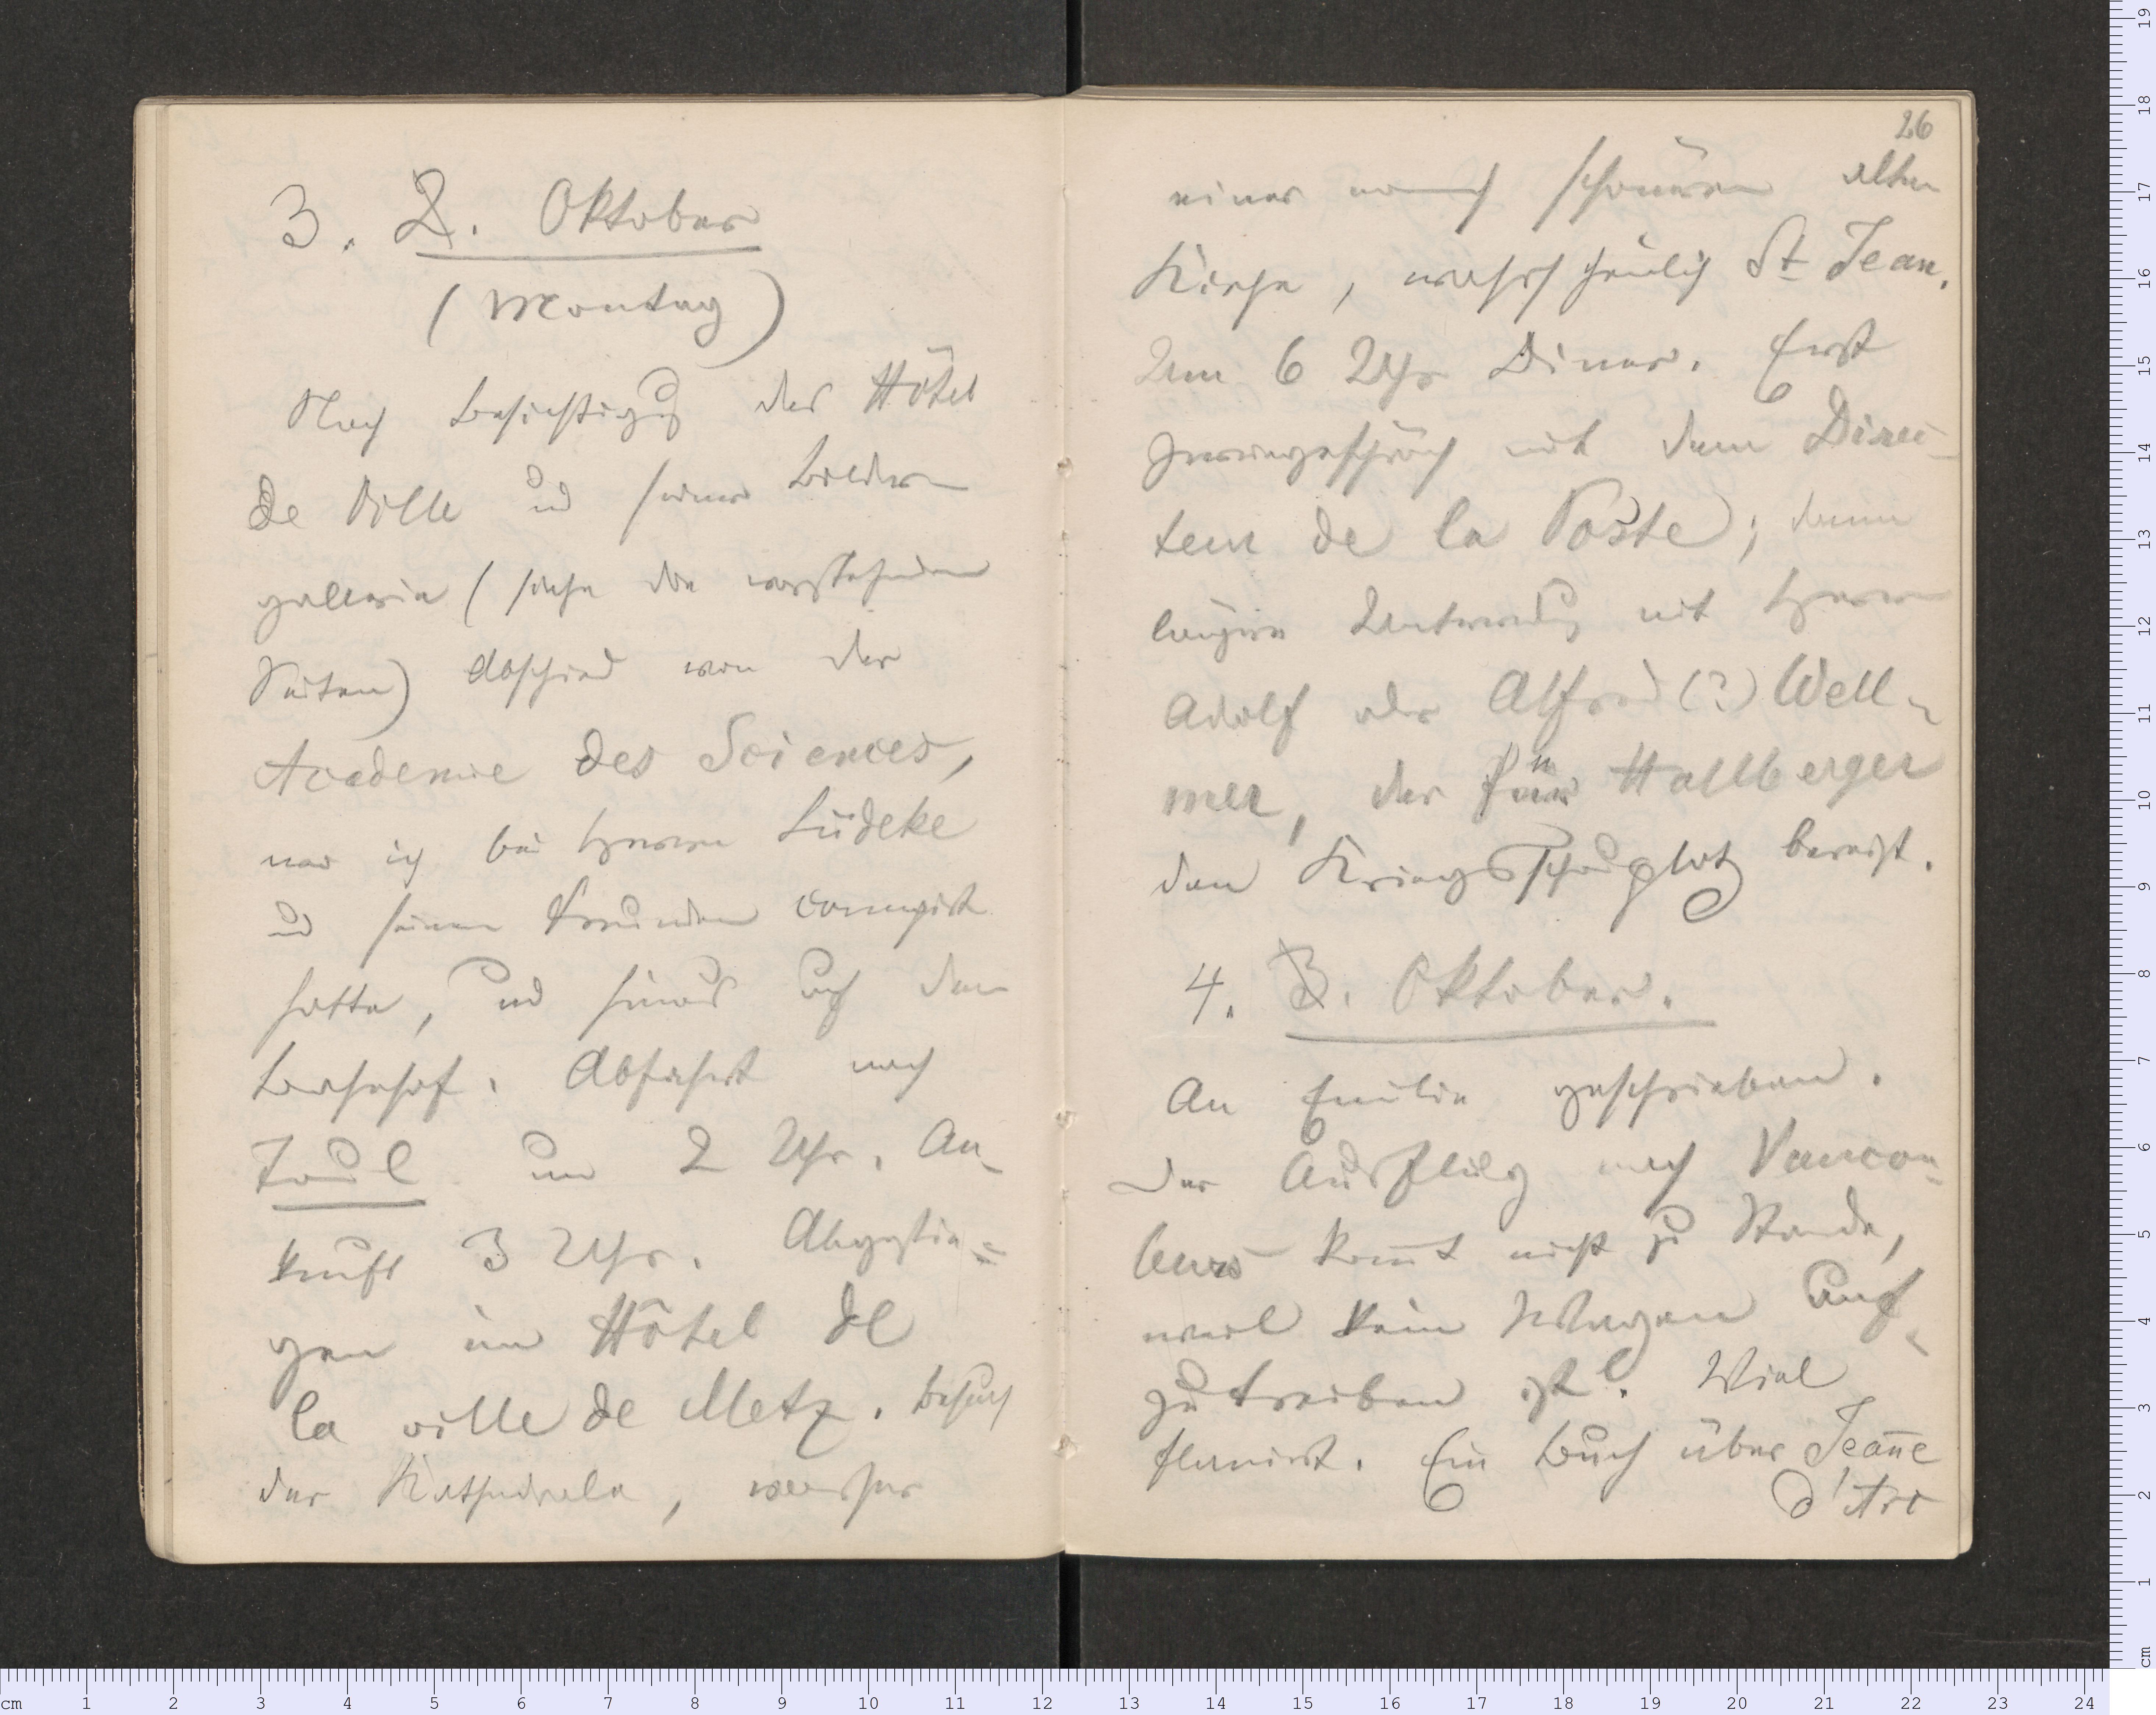 3. 2. Oktober
(Montag)
Nach Besichtigung des Hôtel
de Ville und seiner Bilder
gallerie (siehe die vorstehenden
Seiten) Abschied von der
Academie des Sciences,
wo ich bei Herrn Lüdeke
und seinen Freunden
hatte, und hinaus auf den
Bahnhof. Abfahrt nach
Toul um 2 Uhr. An-
kunft 3 Uhr. Abgestie=
gen im Hôtel de
la ville de Metz. Besuch
der Kathedrale, vorher
26
einer noch schöneren alten
Kirche, wahrscheinlich St Jean.
Um 6 Uhr Diner. Erst
mit dem Direc-
teur de la Poste; dann
längere Unterredung mit Herrn
Adolf oder Alfred (?) Well-
mer, der für Hallberger
den Kriegsschauplatz bereist.
4. 3. Oktober.
An Emilie geschrieben.
Der Ausflug nach Vaucou=
leurs kommt nicht zu Stande,
weil kein Wagen auf-
zutreiben ist. Viel
flanirt. Ein Buch über Jeañe
d'Arc